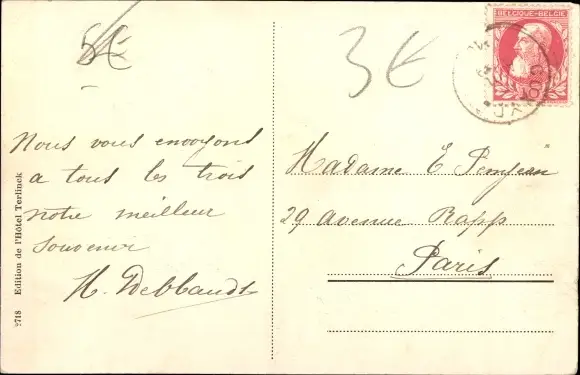 5€
3€
BELGIQUE-BELGIË
Nous vous envoyons
a tous les trois
notre meilleur
souvenir
Madame E
29 Avenue Rapp
Paris
2718 Edition de l'Hôtel Terlinck